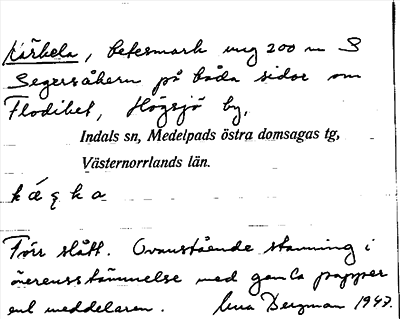 Kärhela, betesmark ung 200 m S
Segersåkern på båda sidor om
Flodibet, Högsjö by,
Indals sn, Medelpads östra domsagas tg,
Västernorrlands län.
Torr slått. Ovanstående stavning i
överensstämmelse med gamla papper
enl meddelaren. Bergman 1947.